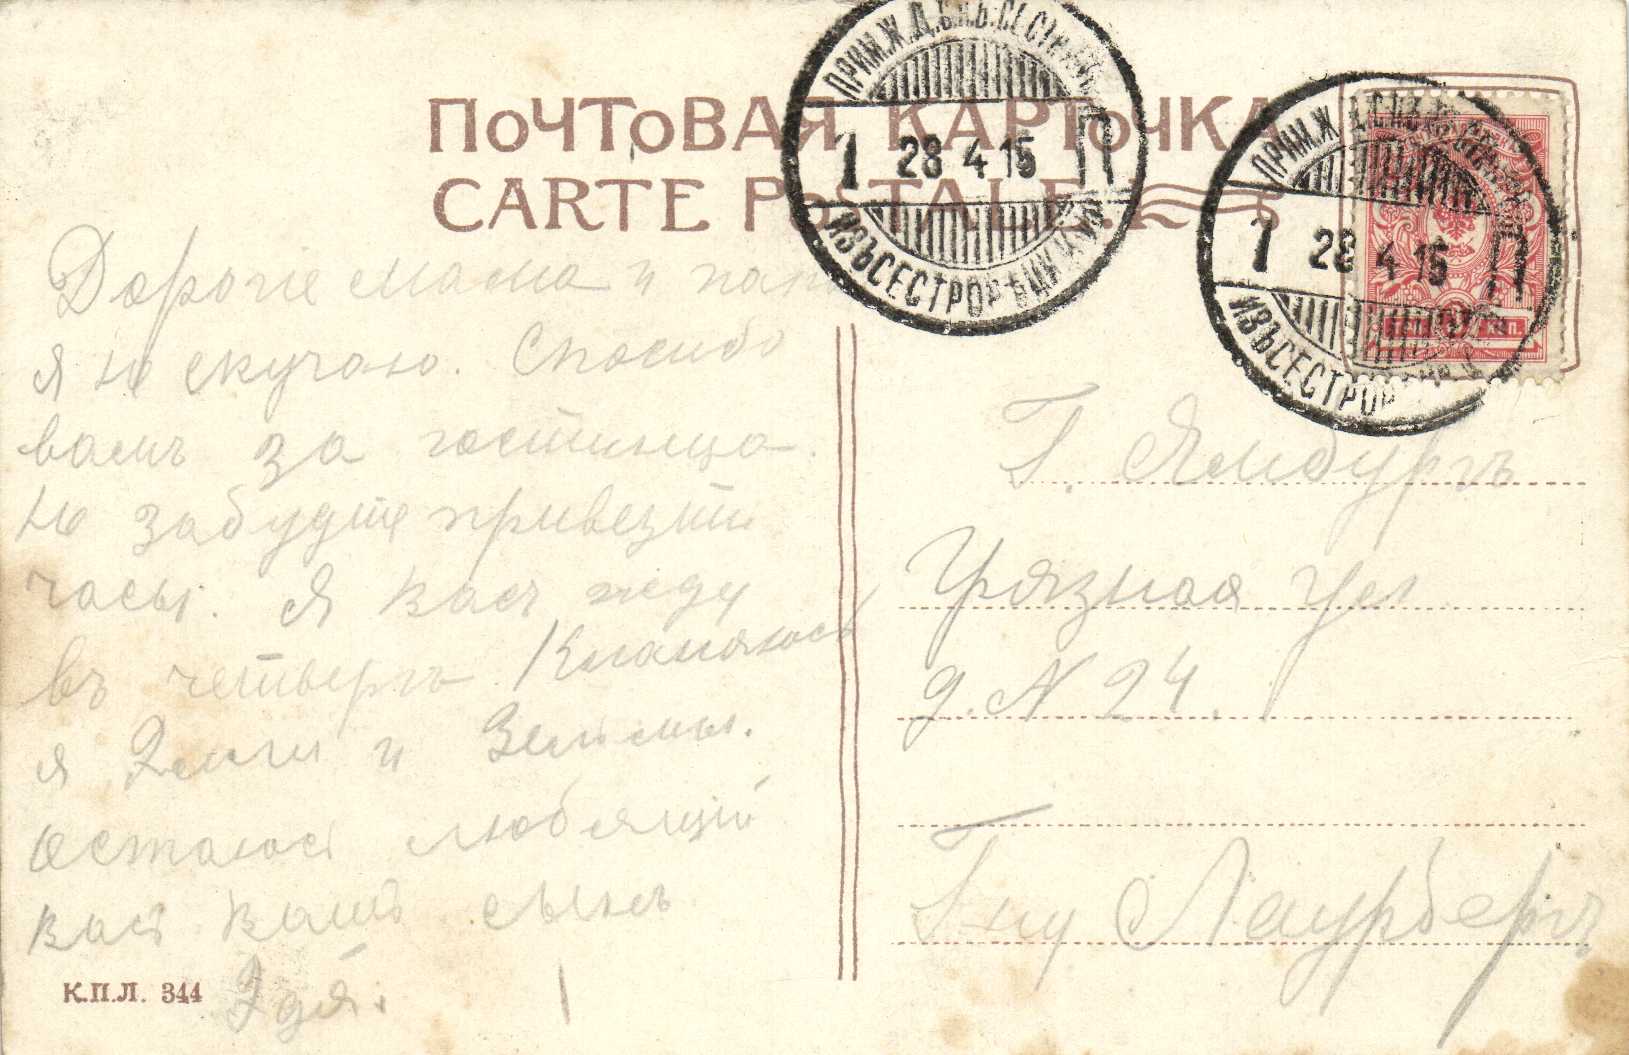 ПОЧТОВАЯ КАРТОЧКА
CARTE POSTALE
1 28 4 15 П
ИЗЪ СЕСТРОР
1 28 4 15 П
ИЗЪ СЕСТРОР
Дорогіе мама и пап
я не скучаю. Спасибо
вамъ за гостинца.
не забудте привезти
часы. Я васъ жду
въ четвергъ Кланяюсь
я Элли и Зельмы.
остаюсь любящій
васъ вашъ сынъ
Эдя.
Г. Ямбургъ
Грязная ул
д. N 24.
Гну Лаурбергъ
К.П.Л. 344